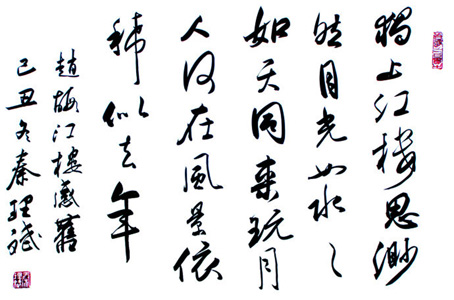 獨上江樓思渺
然月光如水々
如天同來玩月
人何在風景依
稀似去年
趙嘏江樓感舊
己丑冬秦理斌